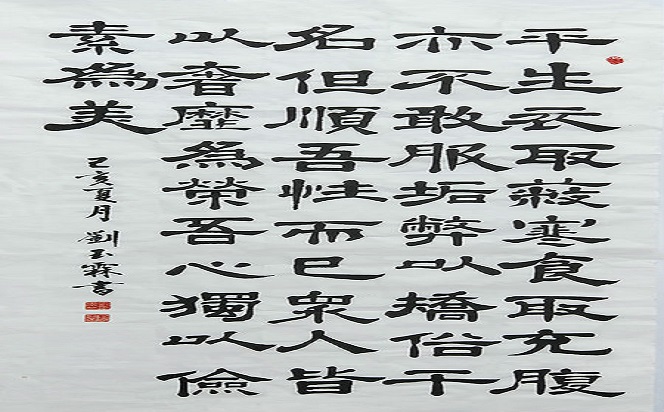 平生衣取蔽寒食取充腹
亦不敢服垢弊以矯俗干
名但順吾性而已眾人皆
以奢靡為榮吾心獨以儉
素為美
己亥夏月劉玉霖書